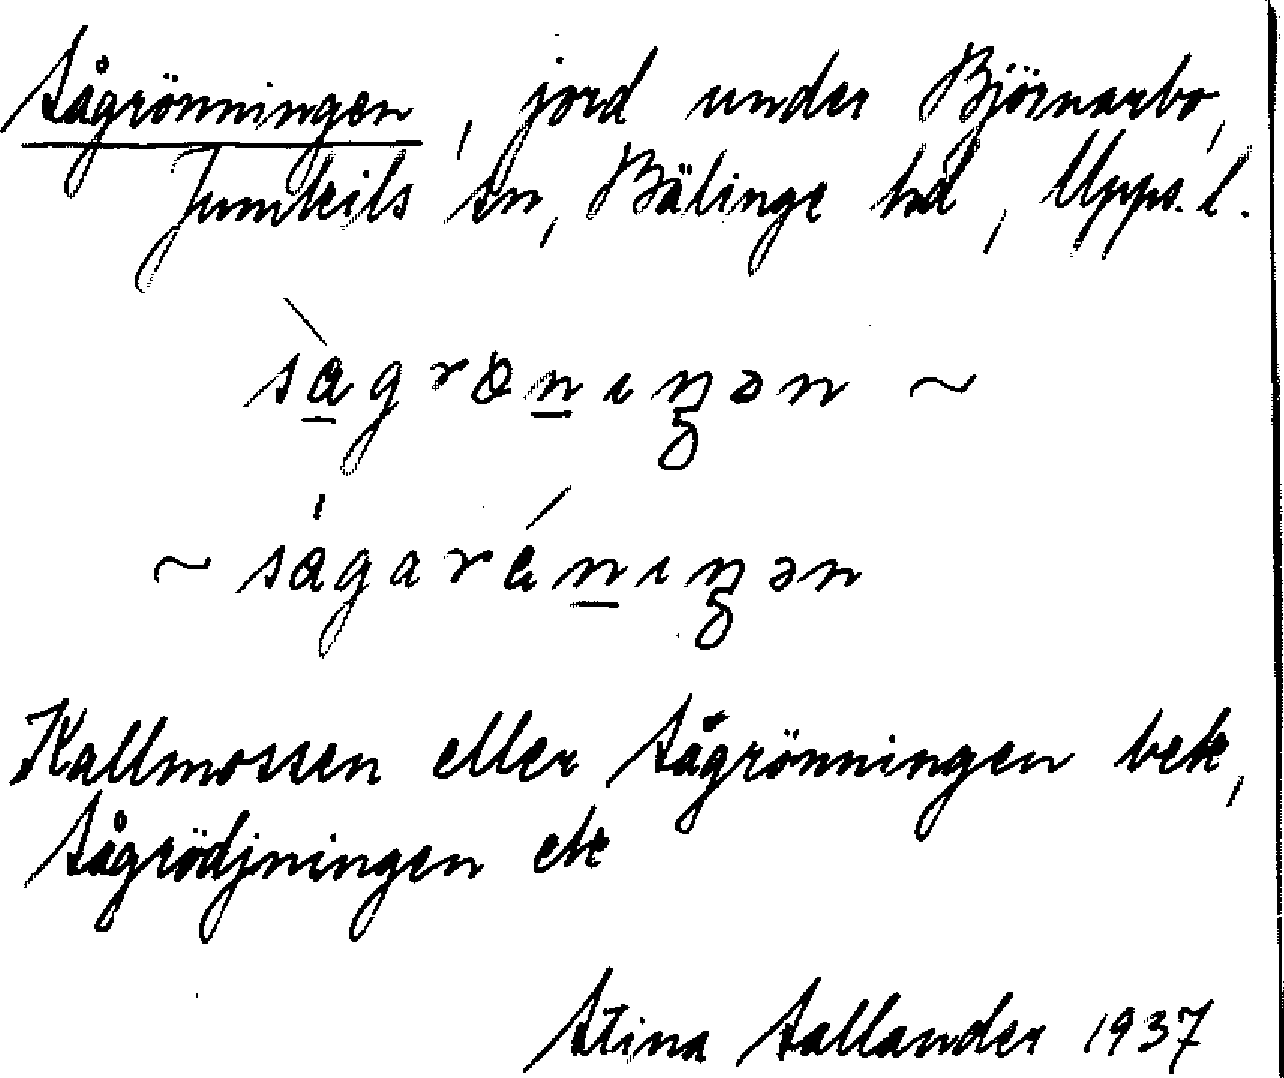 Sågrönningen, jord under Björnarbo,
Jumkils sn, Bälinge hd, Upps. l.
sàgrönıŋən ~
~ ságarénıŋən
Kallmossen eller Sågrönningen bek,
Sågrödjningen ek
Stina Sallander 1937